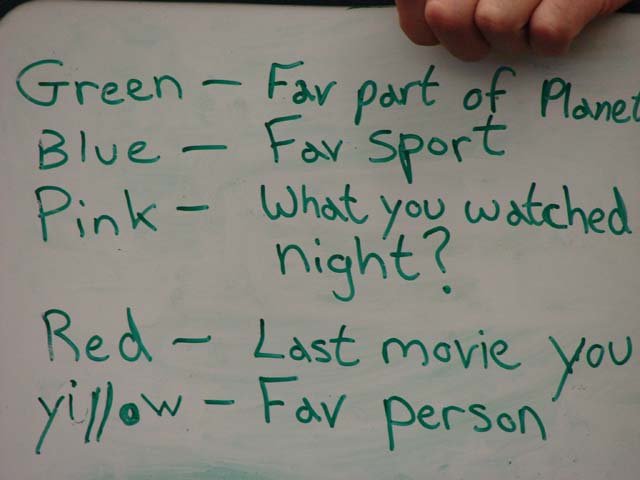 Green - Fav part of Planet
Blue - Fav sport
Pink - What you watched
night?
Red - Last movie you
yillow - Fav person